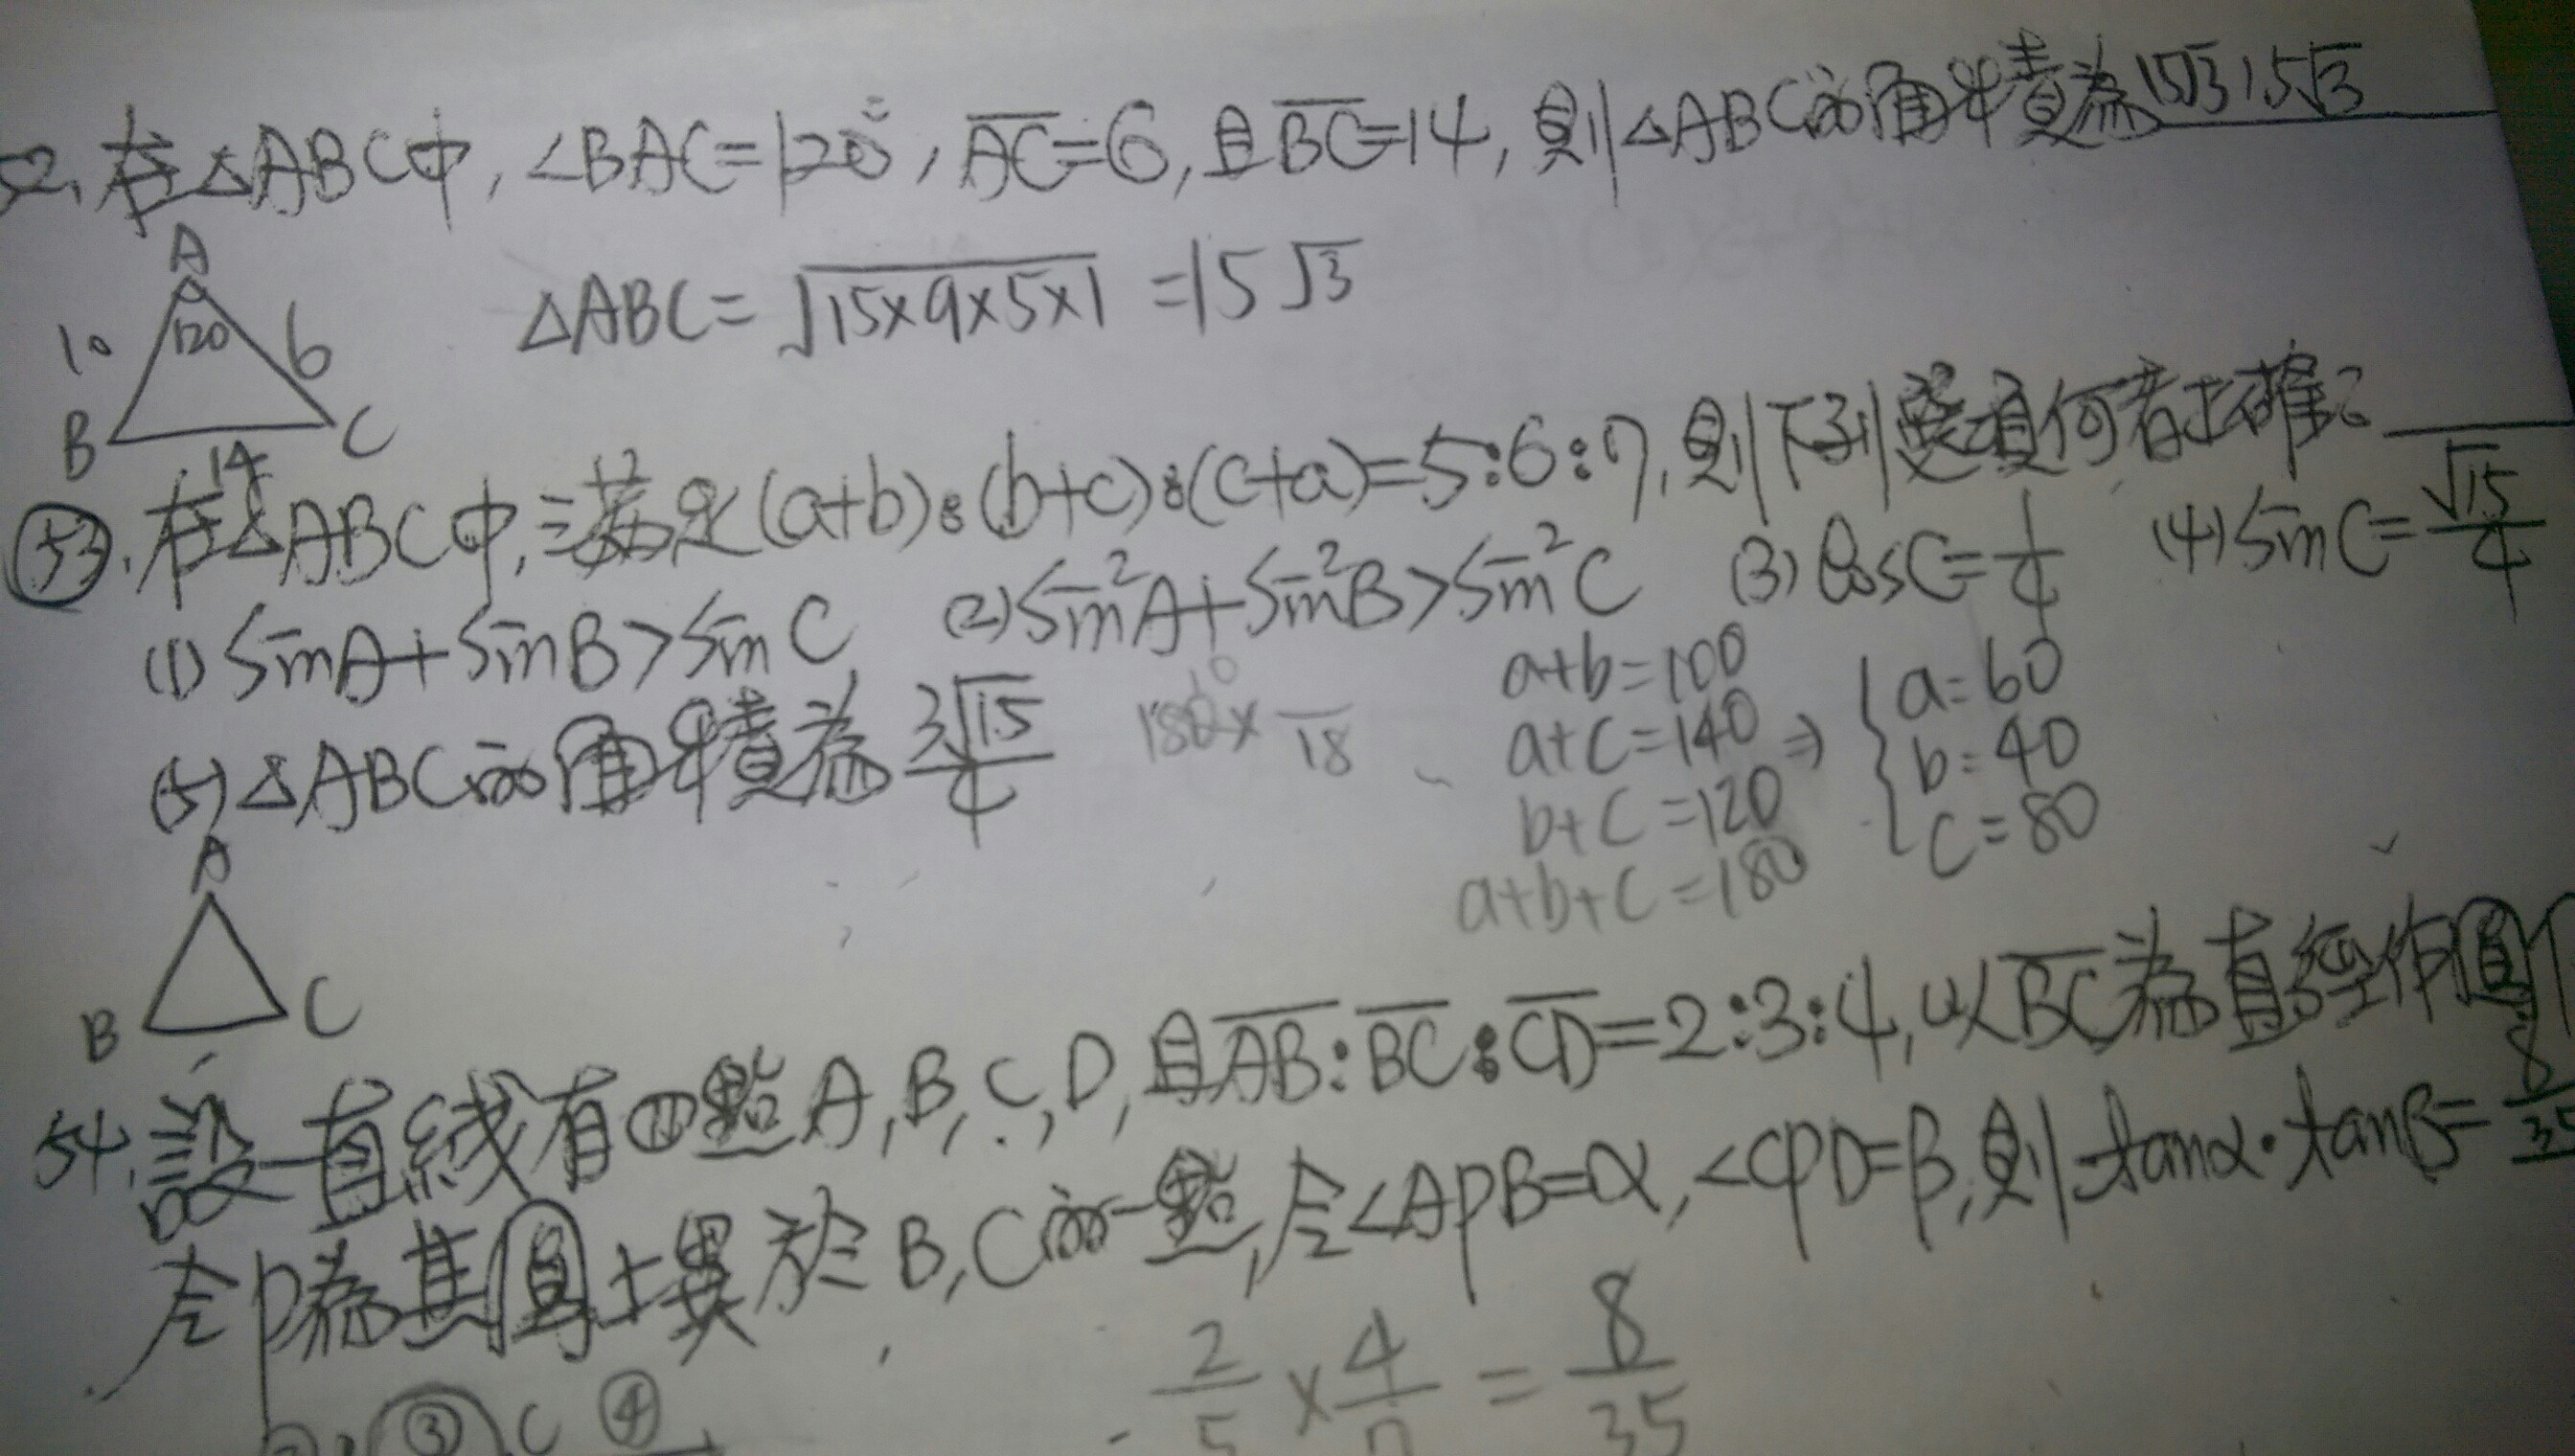 52. 在△ABC中, ∠BAC=120°, AC=6, 且BC=14, 則△ABC的面積為15√3 15√3
A
10 120 6
B 14 C
△ABC=√15×9×5×1 =15√3
53. 在△ABC中, 三邊滿足(a+b):(b+c):(c+a)=5:6:7, 則下列選項何者正確?
(1) sinA+sinB>sinC (2) sin²A+sin²B>sin²C (3) cosC=1/4 (4) sinC=√15/4
(5) △ABC的面積為 3√15/4
180×10/18
a+b=100
a+c=140 ⇒
b+c=120
a+b+c=180
a=60
b=40
c=80
A
B C
54. 設一直線有四點A, B, C, D, 且AB:BC:CD=2:3:4, 以BC為直徑作圓
令P為其圓上異於B, C的一點, 令∠APB=α, ∠CPD=β, 則tanα·tanβ=8/35
2/5×4/7=8/35
③ C ④